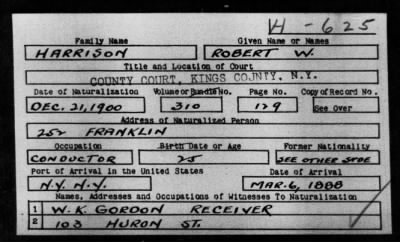 H-625
Family Name Given Name or Names
HARRISON ROBERT W.
Title and Location of Court
COUNTY COURT, KINGS COUNTY, N.Y.
Date of Naturalization Volume or Bundle No. Page No. Copy of Record No.
DEC. 21, 1900 310 129 See Over
Address of Naturalized Person
252 FRANKLIN
Occupation Birth Date or Age Former Nationality
CONDUCTOR 25 SEE OTHER SIDE
Port of Arrival in the United States Date of Arrival
N.Y. N.Y. MAR. 6, 1888
Names, Addresses and Occupations of Witnesses To Naturalization
1 W. K. GORDON RECEIVER
2 103 HURON ST.